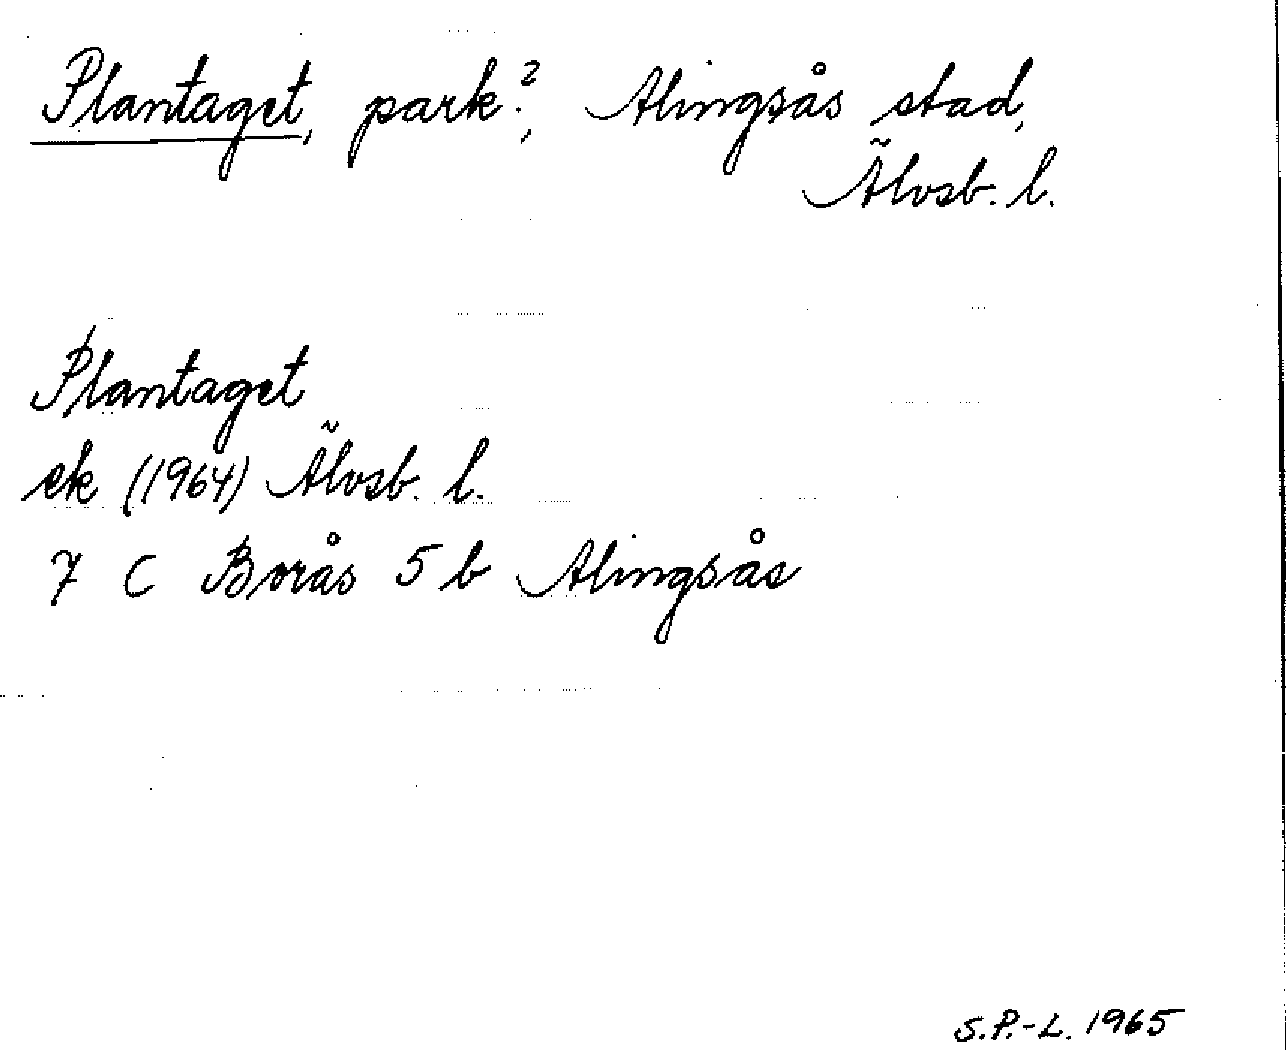 Plantaget, park?, Alingsås stad,
Älvsb. l.
Plantaget
ek (1964) Älvsb. l.
7 C Borås 5 b Alingsås
S.P.-L. 1965